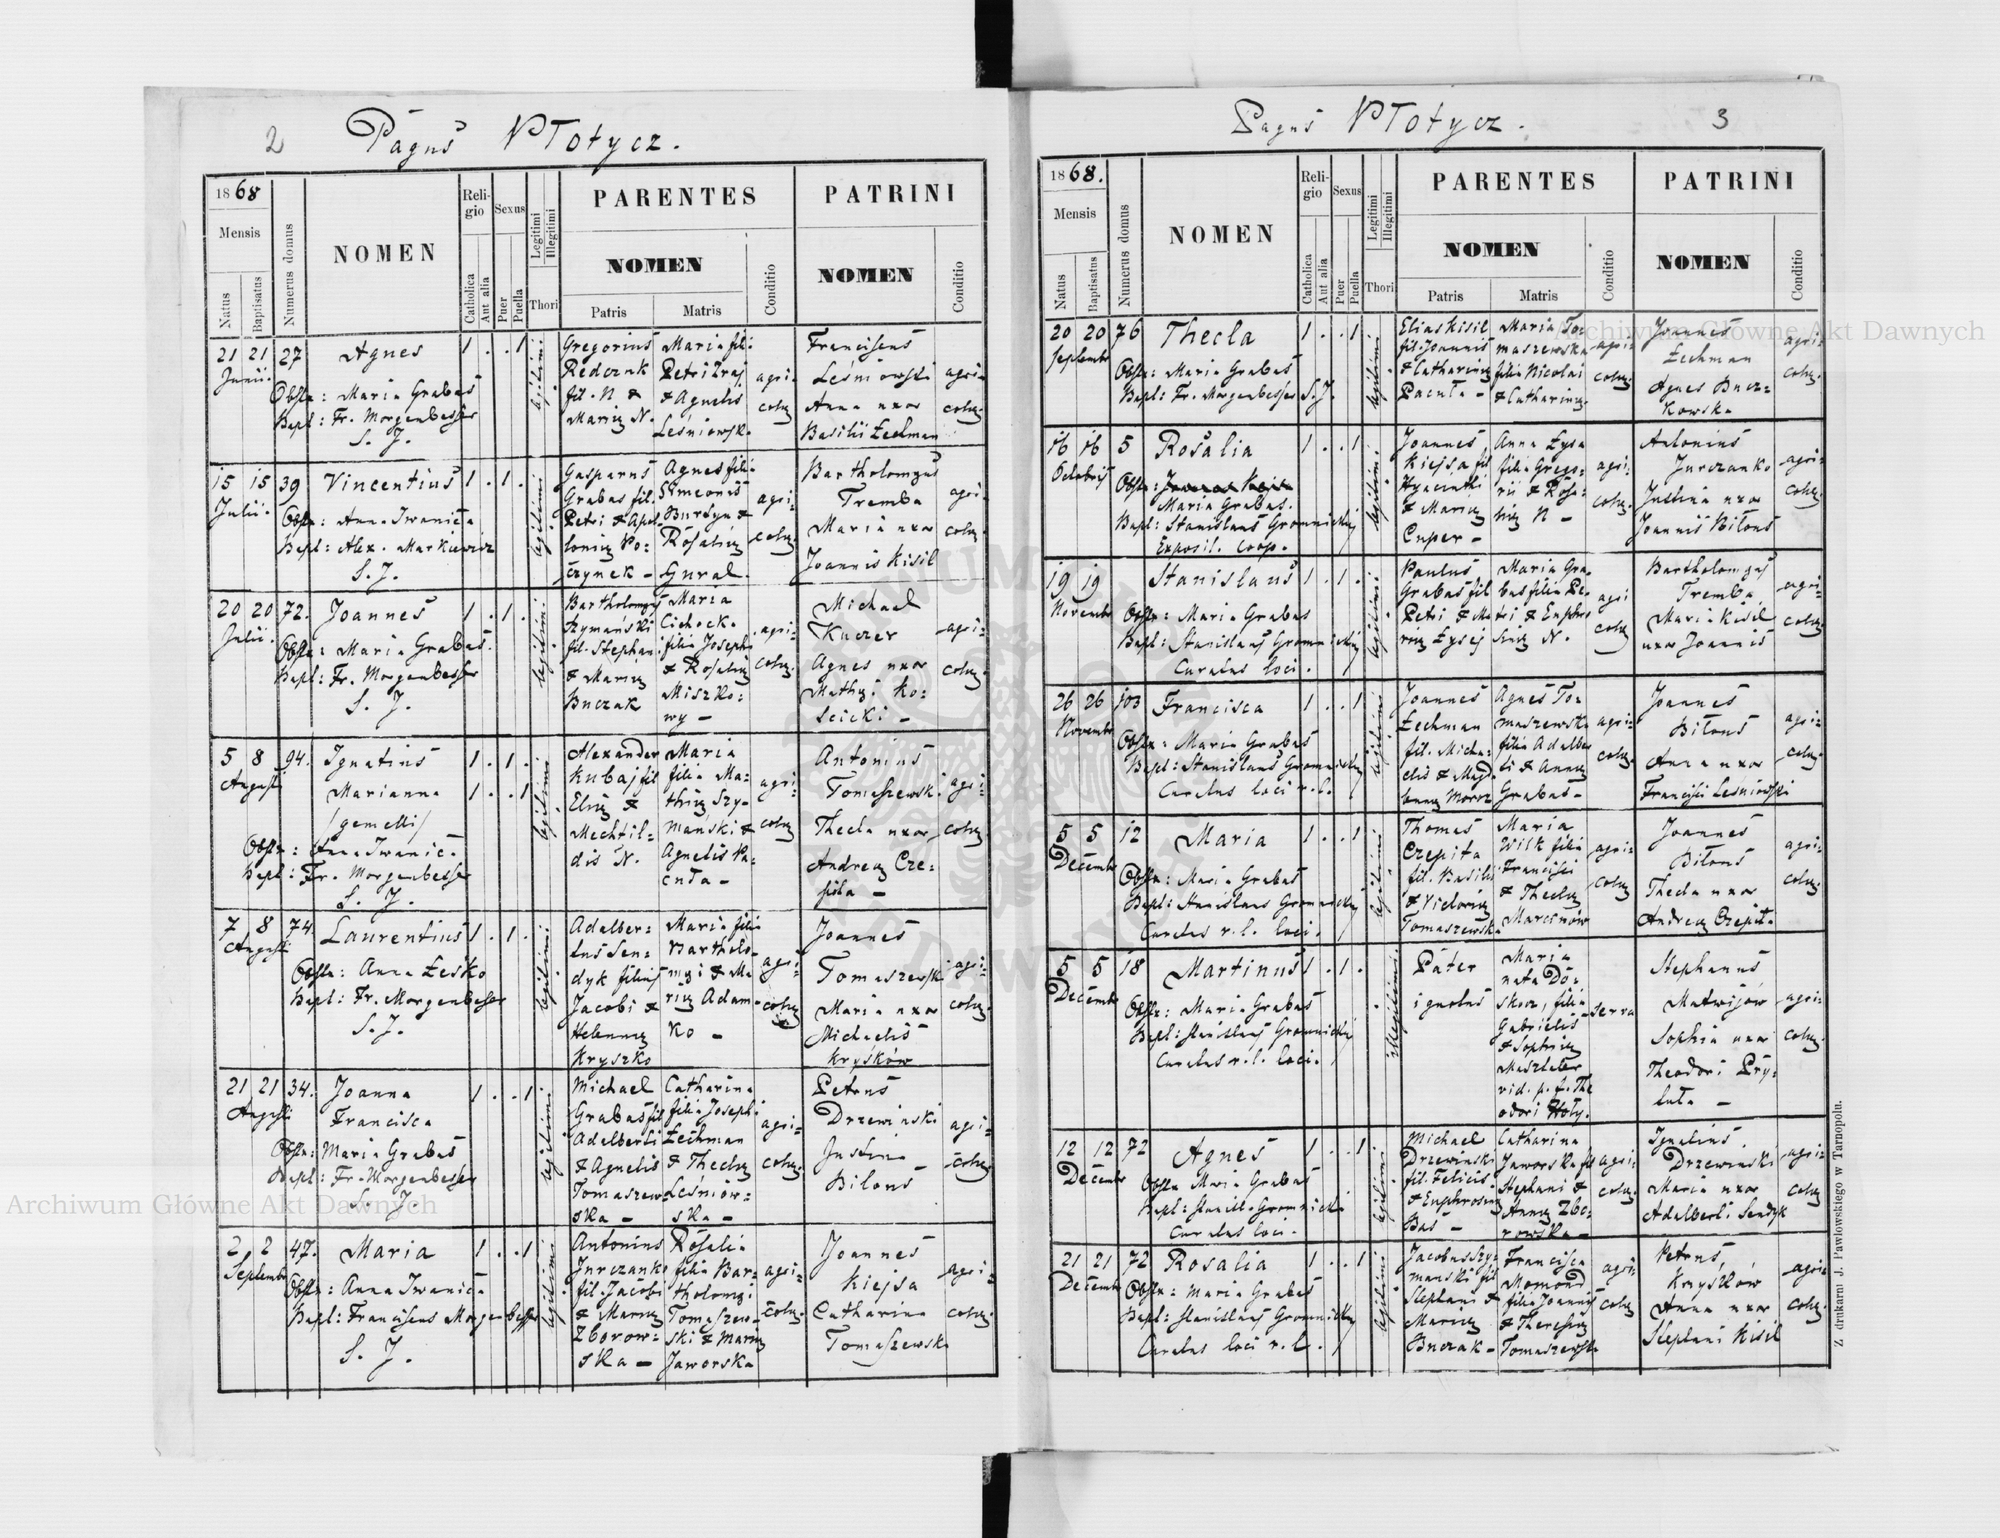 2 Pagus Płotycz.
1868
Mensis
Natus
Baptisatus
Numerus domus
NOMEN
Religio
Catholica
Aut alia
Sexus
Puer
Puella
Legitimi
Illegitimi
Thori
PARENTES
NOMEN
Patris
Matris
Conditio
PATRINI
NOMEN
Conditio
21 21 27 Agnes 1 . . 1
Junii.
Obstr: Maria Grabas
Bapt: Fr. Morgenbesser
S. J.
legitimi
Gregorius
Redczuk
fil. N &
Mariæ N.
Maria fili
Petri Zraj
& Agnetis
Leśniowsk.
agri-
colæ
Franciscus
Leśniowski
Anna uxor
Basilii Łechman
agri-
colæ.
15 15 39 Vincentius 1 . 1 .
Julii.
Obstr: Anna Iwanica
Bapt: Alex. Markiewicz
S. J.
legitimi
Gasparus
Grabas fil.
Petri & Apol-
loniæ Po-
czynek -
Agnes fili
Simeonis
Burdyn &
Rosaliæ
Gural.
agri-
colæ
Bartholomæus
Tremba
Maria uxor
Joannis Kisil
agri-
colæ.
20 20 72. Joannes 1 . 1 .
Julii.
Obstr: Maria Grabas.
Bapt: Fr. Morgenbesser
S. J.
legitimi
Bartholomæus
Szymański
fil. Stephan.
& Mariæ
Buczak
Maria
Cichock.
filia Josephi
& Rosaliæ
Miszko-
wy -
agri-
colæ.
Michael
Kuczer
Agnes uxor
Mathæi Ko-
scicki -
agri-
colæ.
5 8 94. Ignatius 1 . 1 .
Augusti Marianna 1 . . 1
/gemelli/
Obstr: Anna Iwanic.
Bapt: Fr. Morgenbesser
S. J.
legitimi
Alexander
Kubaj fil
Eliæ &
Mechtil-
dis N.
Maria
filia Ma-
thiæ Szy-
mański &
Agnetis Pa-
cuła -
agri-
colæ
Antonius
Tomaszewski
Thecla uxor
Andreæ Cze-
piła -
agri-
colæ
7 8 74. Laurentius 1 . 1 .
Augusti
Obstr: Anna Łeśko
Bapt: Fr. Morgenbesser
S. J.
legitimi
Adalber-
tus Sen-
dyk filius
Jacobi &
Helennæ
Kryszko
Maria filia
Bartholo-
mæi & Ma-
riæ Adam-
ko -
agri-
colæ
Joannes
Tomaszewski
Maria uxor
Michaelis
Kryśków
agri-
colæ.
21 21 34. Joanna 1 . . 1
Augusti Francisca
Obstr: Maria Grabas
Bapt: Fr. Morgenbesser
S. J.
legitimi
Michael
Grabas fil
Adalberti
& Agnetis
Tomaszew-
ska -
Catharina
filia Josephi
Łechman
& Theclæ
Leśniow-
ska -
agri-
colæ.
Petrus
Drzewinski
Justina
Bilous
agri-
colæ
2 2 47. Maria 1 . . 1
Septembr
Obstr: Anna Iwanica
Bapt: Franciscus Morgenbesser
S. J.
legitimi
Antonius
Jurczanko
fil. Jacobi
& Mariæ
Zborow-
ska -
Rosalia
filia Bar-
tholomæi
Tomaszew-
ski & Mariæ
Jaworska
agri-
colæ.
Joannes
Kiejsa
Catharina
Tomaszewsk.
agri-
colæ.
Pagus Płotycz. 3
1868.
Mensis
Natus
Baptisatus
Numerus domus
NOMEN
Religio
Catholica
Aut alia
Sexus
Puer
Puella
Legitimi
Illegitimi
Thori
PARENTES
NOMEN
Patris
Matris
Conditio
PATRINI
NOMEN
Conditio
20 20 76 Thecla 1 . . 1
Septembr
Obstr: Maria Grabas
Bapt: Fr. Morgenbesser S. J.
legitimi
Elias Kisil
fil. Joannis
& Catharinæ
Pacuła -
Maria To-
maszewska
filia Nicolai
& Catharinæ
agri-
colæ.
Joannes
Łechman
Agnes Bucz-
kowska
agri-
colæ.
16 16 5 Rosalia 1 . . 1
Octobris
Obstr:
Maria Grabas.
Bapt: Stanislaus Gromnicki
Exposit. coop.
legitimi
Joannes
Kiejsa fil
Hyacinthi
& Mariæ
Cuper -
Anna Łysa
filia Grego-
rii & Rosa-
liæ N -
agri-
colæ.
Antonius
Jurczanko
Justina uxor
Joannis Bilous
agri-
colæ.
19 19 Stanislaus 1 . 1 .
Novembr
Obstr: Maria Grabas
Bapt: Stanislaus Gromnicki
Curatus loci.
legitimi
Paulus
Grabas fil
Petri & Ma-
riæ Łysej
Maria Gra-
bas filia Pe-
tri & Euphro-
sinæ N.
agri
colæ
Bartholomæus
Tremba
Maria Kisil
uxor Joannis
agri-
colæ.
26 26 103 Francisca 1 . . 1
Novembr
Obstr: Maria Grabas
Bapt: Stanislaus Gromnicki
Curatus loci r. l.
legitimi
Joannes
Łechman
fil. Micha-
elis & Magd.
Agnes To-
maszewska
filia Adalber-
ti & Annæ
Grabas -
agri-
colæ.
Joannes
Bilous
Anna uxor
Francisci Leśniowski
agri-
colæ.
5 5 12 Maria 1 . . 1
Decembr
Obstr: Maria Grabas
Bapt: Stanislaus Gromnicki
Curatus r. l. loci.
legitimi
Thomas
Czepita
fil. Basilii
& Victoriæ
Tomaszewsk.
Maria
Wilk filia
Francisci
& Theclæ
Marcinów
agri-
colæ
Joannes
Bilous
Thecla uxor
Andreæ Czepit.
agri-
colæ.
5 5 18 Martinus 1 . 1 .
Decembr
Obstr: Maria Grabas
Bapt: Stanislaus Gromnicki
Curatus r. l. loci.
illegitimi.
Pater
ignotus
Maria
nata Do-
skocz, filia
Gabrielis
& Sophiæ
Masztaler
vid. p. f. The
odori Hoły.
serva
Stephanus
Matwijów
Sophia uxor
Theodori Pry-
tuła -
agri-
colæ.
12 12 72 Agnes 1 . . 1
Decembr
Obstr Maria Grabas
Bapt: Stanisl. Gromnicki
Curatus loci.
legitimi
Michael
Drzewinski
fil. Felicis
& Euphrosinæ
Bas -
Catharina
Jaworska fil
Stephani &
Annæ Zbo-
rowska -
agri-
colæ.
Ignatius
Drzewinski
Maria uxor
Adalberti Sendyk
agri-
colæ
21 21 72 Rosalia 1 . . 1
Decembr
Obstr: Maria Grabas
Bapt: Stanislaus Gromnicki
Curatus loci r. l.
legitimi
Jacobus Szy-
manski fil
Stephani &
Mariæ
Buczak -
Francisca
Momond
filia Joannis
& Theresiæ
Tomaszewsk.
agri-
colæ.
Petrus
Kryśków
Anna uxor
Stephani Kisil
agri-
colæ.
Z drukarni J. Pawłowskiego w Tarnopolu.
Archiwum Główne Akt Dawnych
Archiwum Główne Akt Dawnych